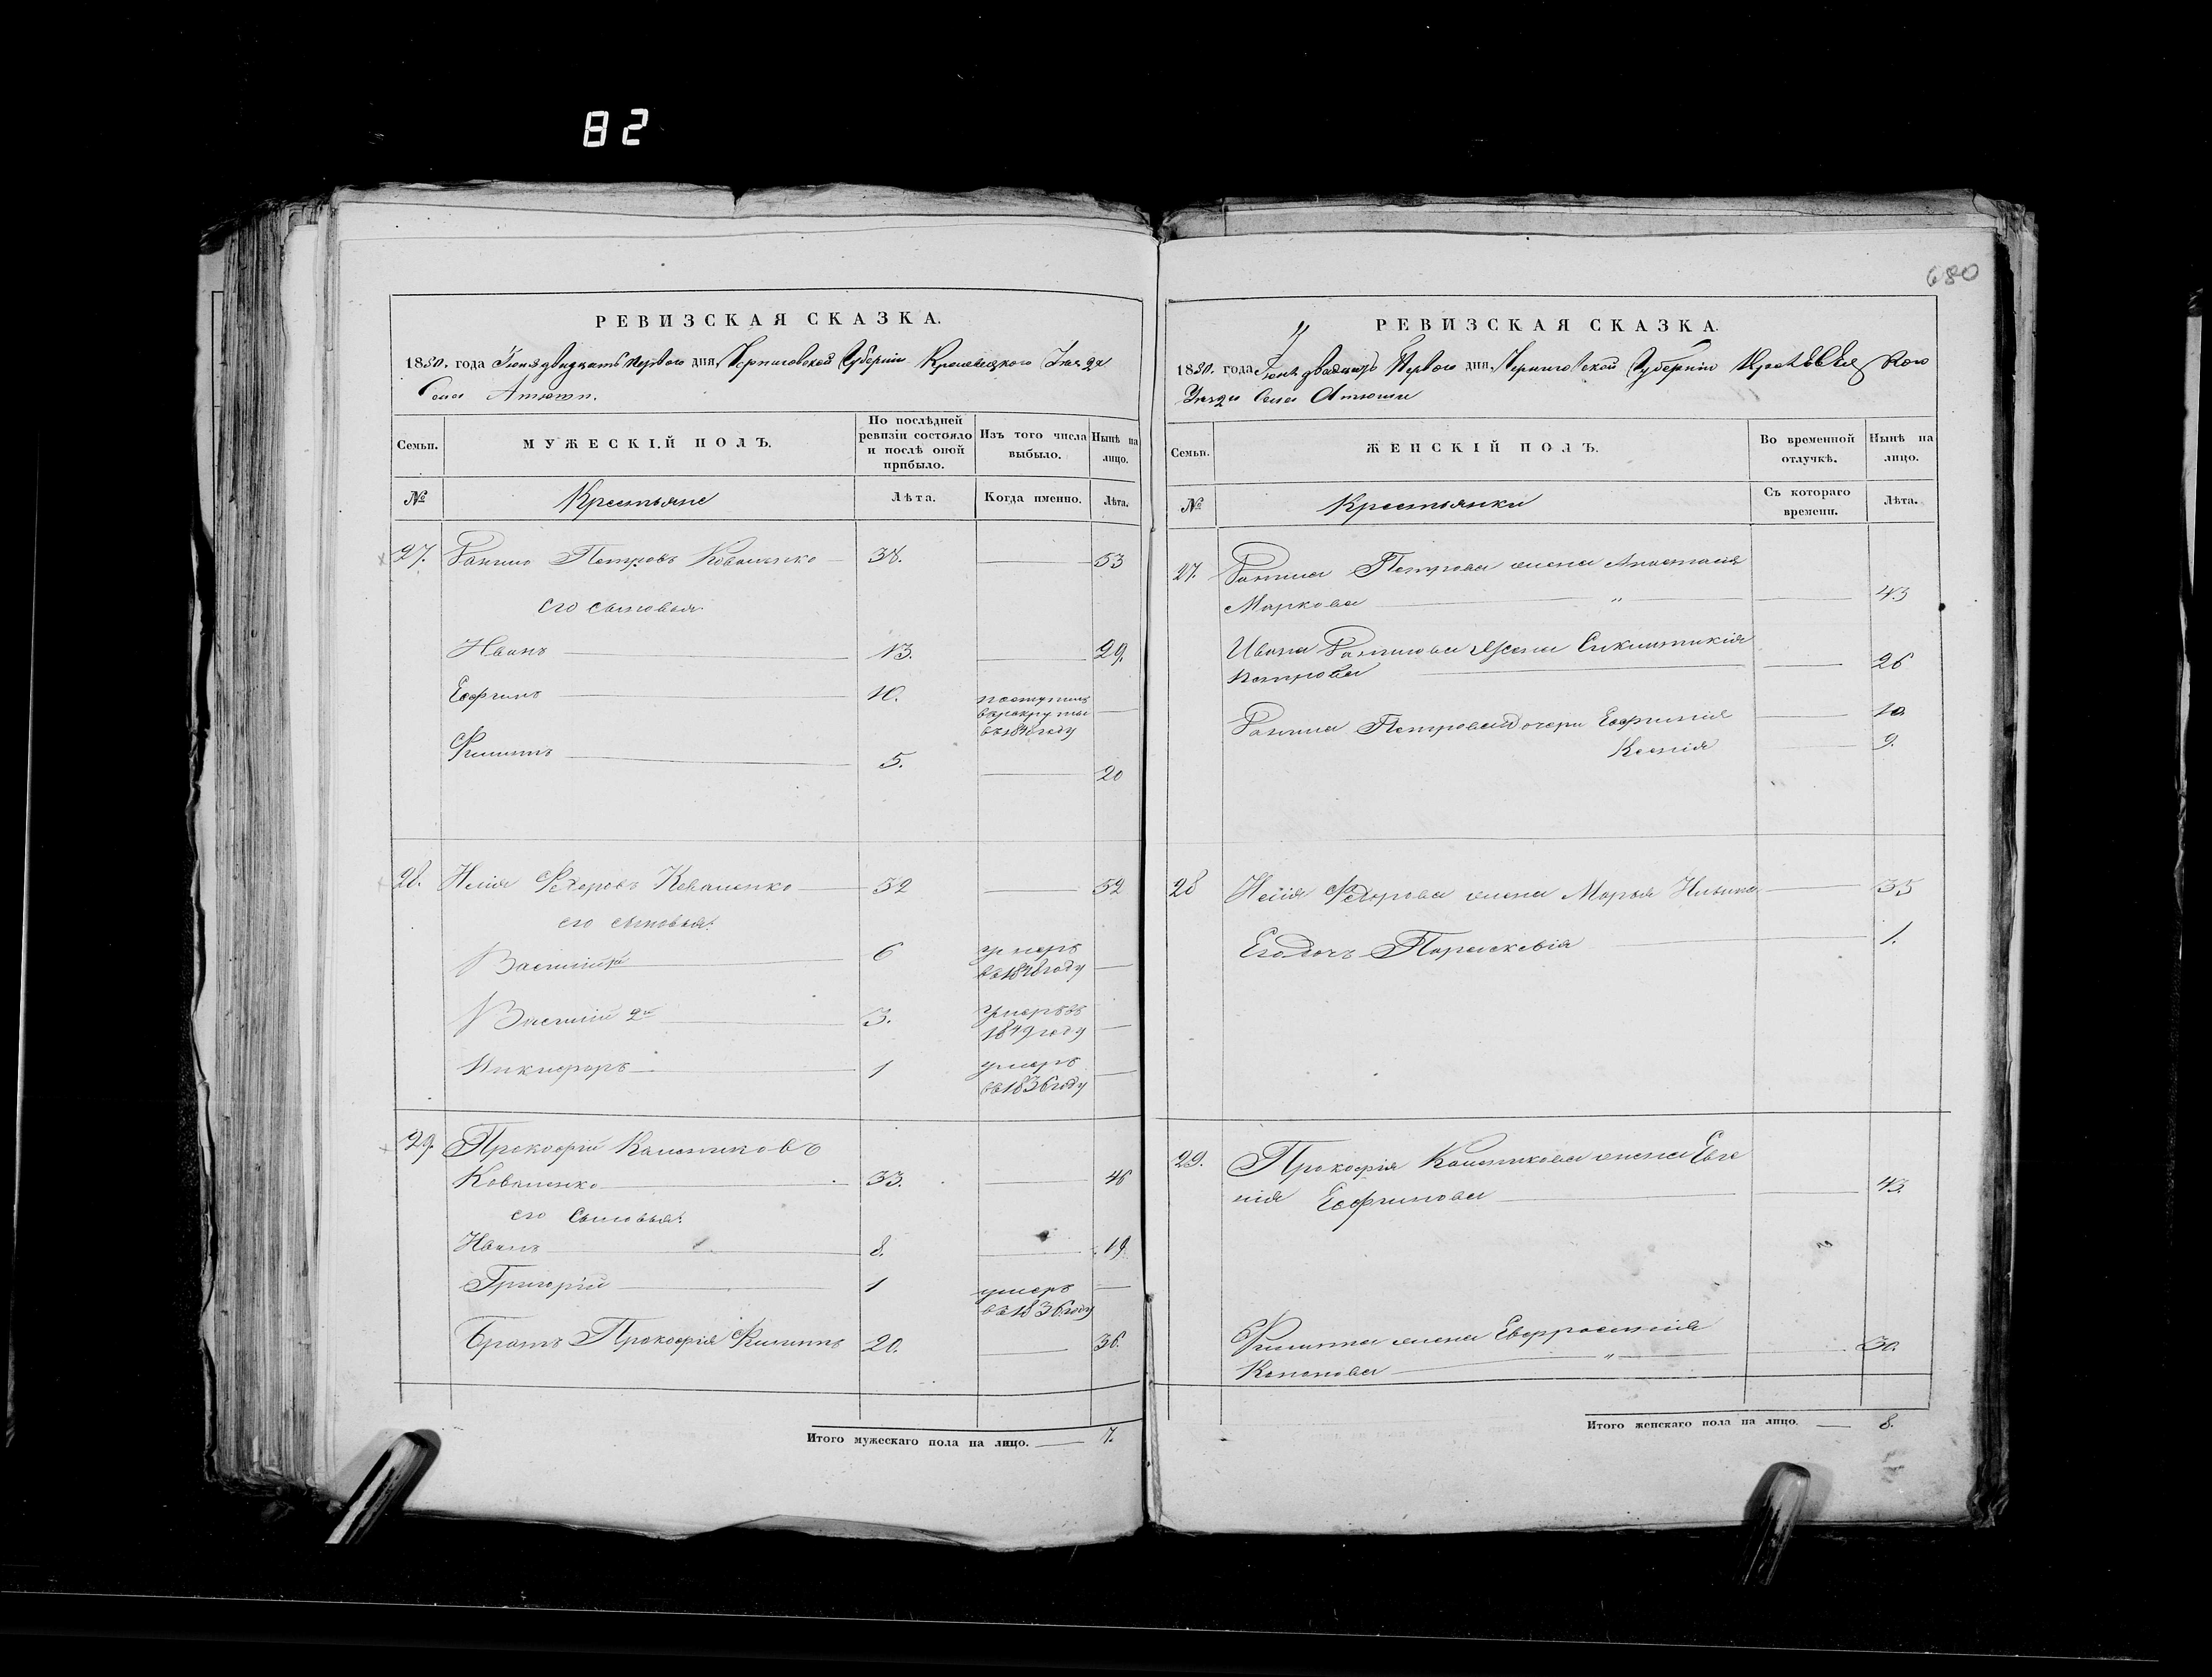 82
680
РЕВИЗСКАЯ СКАЗКА.
1850. года Іюня двадцать перваго дня, Черниговской Губерніи Кролевецкого Уѣзда
Села Атюши.
Семьи. МУЖЕСКІЙ ПОЛЪ. По послѣдней ревизіи состояло и послѣ оной прибыло. Изъ того числа выбыло. Нынѣ на лицо.
№ Крестьяне Лѣта. Когда именно. Лѣта.
27. Петровъ Коваленко 38. 53
его сыновья
Иванъ 13. 29.
Ефимъ 10. поступилъ
в рекруты
въ 1840 году
Филипъ 5. 20
28. Федоровъ Коваленко 52 52
его сыновья:
Василій 6 умеръ
въ 1848 году
Василій 2й 3. умеръ въ
1849 году
Никифоръ 1 умеръ
въ 1836 году
29. Прокофій Калениковъ
Коваленко 33. 46
его сыновья:
Иванъ 8. 19
Григорій 1 умеръ
въ 1836 году
Братъ Прокофія Филипъ 20. 36.
Итого мужескаго пола на лицо. 7.
РЕВИЗСКАЯ СКАЗКА.
1850. года Іюня двадцать Перваго дня, Черниговской Губерніи Кролевецкого
Уѣзда Села Атюши
Семьи. ЖЕНСКІЙ ПОЛЪ. Во временной отлучкѣ. Нынѣ на лицо.
№ Крестьянки Съ котораго времени. Лѣта.
27. Петрова жена Анастасія
Маркова " 43
Ивана жена
Петрова 26
Петрова дочери Евфимія 10
Ксенія 9.
28 Федорова жена Марья 35
Его дочь Параскевія 1.
29. Прокофія Каленикова жена Евге
нія Евфимова 43.
Филипа жена Евфросинія
Кононова " 30.
Итого женскаго пола на лицо. 8.